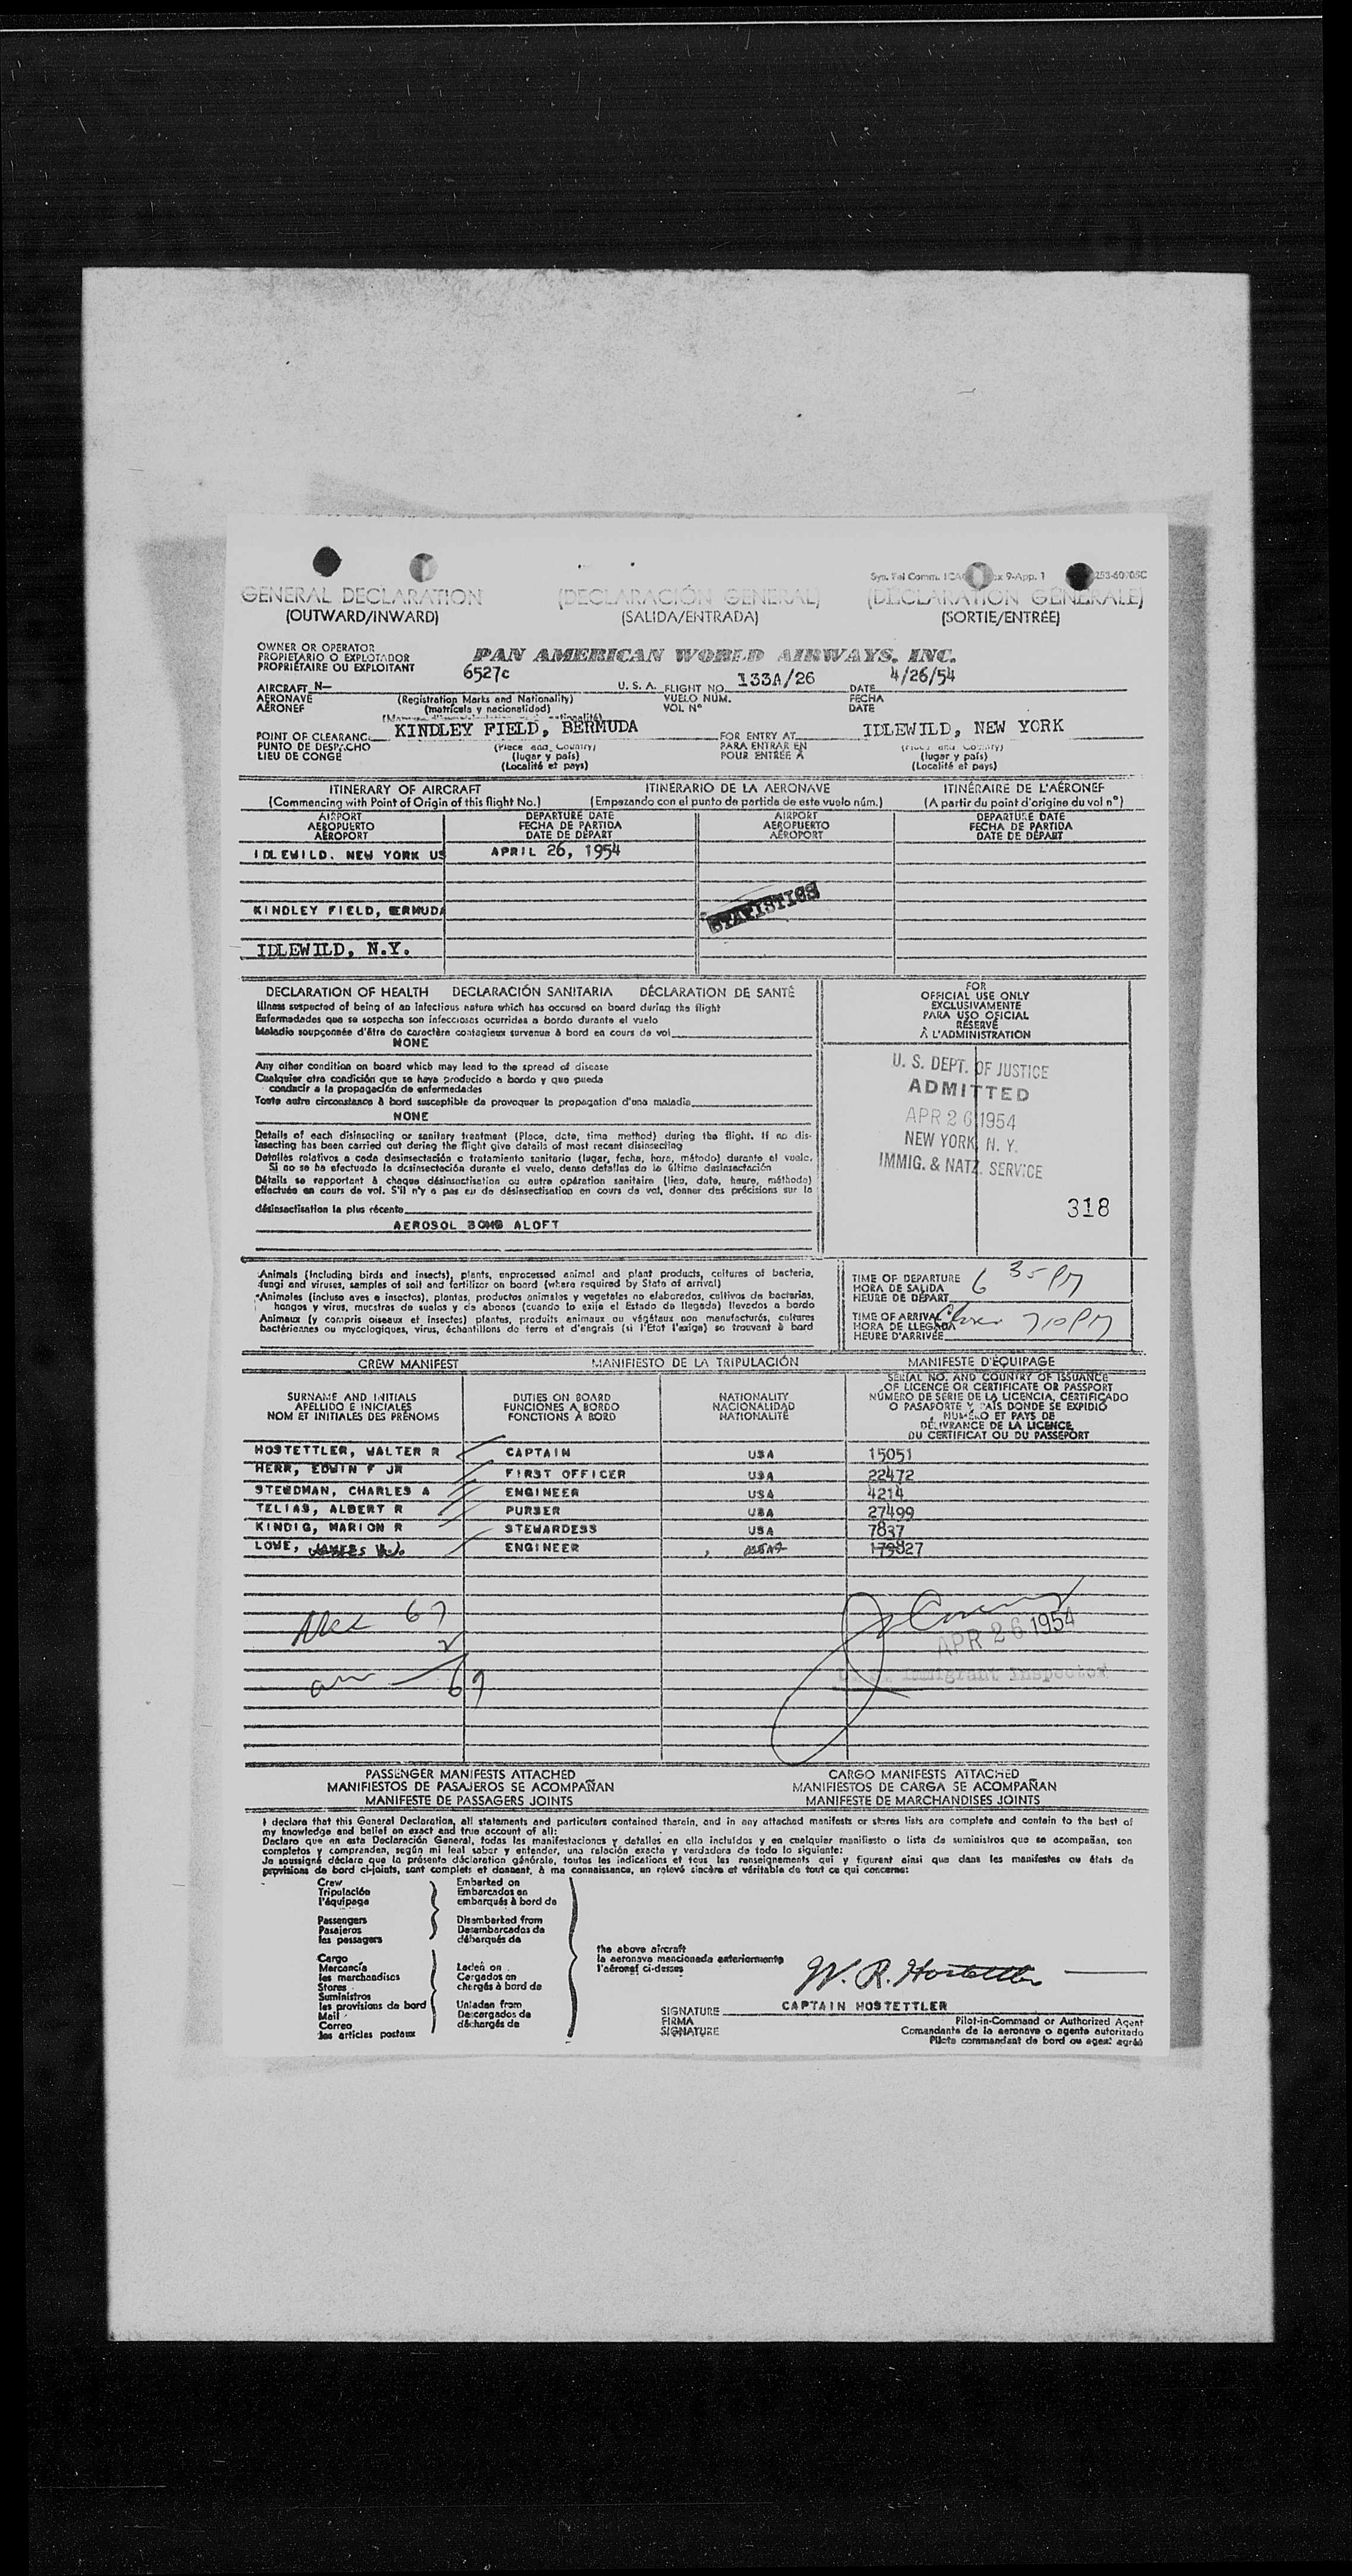 Sys. Fel Comm.
9-App. 1
253-60705C
GENERAL DECLARATION (DECLARACIÓN GENERAL) (DÉCLARATION GÉNÉRALE)
(OUTWARD/INWARD) (SALIDA/ENTRADA) (SORTIE/ENTRÉE)
OWNER OR OPERATOR
PROPIETARIO O EXPLOTADOR
PROPRIÉTAIRE OU EXPLOITANT
PAN AMERICAN WORLD AIRWAYS, INC.
6527c 133A/26 4/26/54
AIRCRAFT N— U. S. A. FLIGHT NO. DATE
AERONAVE (Registration Marks and Nationality) VUELO NÚM. FECHA
AÉRONEF (matrícula y nacionalidad) VOL N° DATE
KINDLEY FIELD, BERMUDA IDLEWILD, NEW YORK
POINT OF CLEARANCE FOR ENTRY AT
PUNTO DE DESPACHO (Place and Country) PARA ENTRAR EN (Place and Country)
LIEU DE CONGÉ (lugar y país) POUR ENTRÉE À (lugar y país)
(Localité et pays) (Localité et pays)
ITINERARY OF AIRCRAFT ITINERARIO DE LA AERONAVE ITINÉRAIRE DE L'AÉRONEF
(Commencing with Point of Origin of this flight No.) (Empezando con el punto de partida de este vuelo núm.) (A partir du point d'origine du vol n°)
AIRPORT DEPARTURE DATE AIRPORT DEPARTURE DATE
AEROPUERTO FECHA DE PARTIDA AEROPUERTO FECHA DE PARTIDA
AÉROPORT DATE DE DÉPART AÉROPORT DATE DE DÉPART
IDLEWILD. NEW YORK US APRIL 26, 1954
STATISTICS
KINDLEY FIELD, BERMUDA
IDLEWILD, N.Y.
DECLARATION OF HEALTH DECLARACIÓN SANITARIA DÉCLARATION DE SANTÉ
Illness suspected of being of an infectious nature which has occured on board during the flight
Enfermedades que se sospecha son infecciosas ocurridas a bordo durante el vuelo
Maladie soupçonnée d'être de caractère contagieux survenue à bord en cours de vol
NONE
Any other condition on board which may lead to the spread of disease
Cualquier otra condición que se haya producido a bordo y que pueda
conducir a la propagación de enfermedades
Toute autre circonstance à bord susceptible de provoquer la propagation d'une maladie
NONE
Details of each disinsecting or sanitary treatment (Place, date, time method) during the flight. If no dis-
insecting has been carried out during the flight give details of most recent disinsecting
Detalles relativos a cada desinsectación o tratamiento sanitario (lugar, fecha, hora, método) durante el vuelo.
Si no se ha efectuado la desinsectación durante el vuelo, dense detalles de la última desinsectación
Détails se rapportant à chaque désinsectisation ou autre opération sanitaire (lieu, date, heure, méthode)
effectuée en cours de vol. S'il n'y a pas eu de désinsectisation en cours de vol, donner des précisions sur la
désinsectisation la plus récente
AEROSOL BOMB ALOFT
FOR
OFFICIAL USE ONLY
EXCLUSIVAMENTE
PARA USO OFICIAL
RÉSERVÉ
À L'ADMINISTRATION
U. S. DEPT. OF JUSTICE
ADMITTED
APR 26 1954
NEW YORK, N. Y.
IMMIG. & NATZ. SERVICE
318
Animals (including birds and insects), plants, unprocessed animal and plant products, cultures of bacteria,
fungi and viruses, samples of soil and fertilizer on board (where required by State of arrival)
Animales (incluso aves e insectos), plantas, productos animales y vegetales no elaborados, cultivos de bacterias,
hongos y virus, muestras de suelos y de abonos (cuando lo exija el Estado de llegada) llevados a bordo
Animaux (y compris oiseaux et insectes) plantes, produits animaux ou végétaux non manufacturés, cultures
bactériennes ou mycologiques, virus, échantillons de terre et d'engrais (si l'État l'exige) se trouvant à bord
TIME OF DEPARTURE
HORA DE SALIDA 6 35 PM
HEURE DE DÉPART
TIME OF ARRIVAL
HORA DE LLEGADA 710 PM
HEURE D'ARRIVÉE
CREW MANIFEST MANIFIESTO DE LA TRIPULACIÓN MANIFESTE D'ÉQUIPAGE
SURNAME AND INITIALS
APELLIDO E INICIALES
NOM ET INITIALES DES PRÉNOMS
DUTIES ON BOARD
FUNCIONES A BORDO
FONCTIONS À BORD
NATIONALITY
NACIONALIDAD
NATIONALITÉ
SERIAL NO. AND COUNTRY OF ISSUANCE
OF LICENCE OR CERTIFICATE OR PASSPORT
NÚMERO DE SERIE DE LA LICENCIA, CERTIFICADO
O PASAPORTE Y PAÍS DONDE SE EXPIDIÓ
NUMÉRO ET PAYS DE
DÉLIVRANCE DE LA LICENCE,
DU CERTIFICAT OU DU PASSEPORT
HOSTETTLER, WALTER R CAPTAIN USA 15051
HERR, EDWIN F JR FIRST OFFICER USA 22472
STEWDMAN, CHARLES A ENGINEER USA 4214
TELIAS, ALBERT R PURSER USA 27499
KINDIG, MARION R STEWARDESS USA 7837
LOWE, JAMES ENGINEER 179827
67
2
69
APR 26 1954
Immigrant Inspector
PASSENGER MANIFESTS ATTACHED CARGO MANIFESTS ATTACHED
MANIFIESTOS DE PASAJEROS SE ACOMPAÑAN MANIFIESTOS DE CARGA SE ACOMPAÑAN
MANIFESTE DE PASSAGERS JOINTS MANIFESTE DE MARCHANDISES JOINTS
I declare that this General Declaration, all statements and particulars contained therein, and in any attached manifests or stores lists are complete and contain to the best of
my knowledge and belief an exact and true account of all:
Declaro que en esta Declaración General, todas las manifestaciones y detalles en ella incluídos y en cualquier manifiesto o lista de suministros que se acompañan, son
completos y comprenden, según mi leal saber y entender, una relación exacta y verdadera de todo lo siguiente:
Je soussigné déclare que la présente déclaration générale, toutes les indications et tous les renseignements qui y figurent ainsi que dans les manifestes ou états de
provisions de bord ci-joints, sont complets et donnent, à ma connaissance, un relevé sincère et véritable de tout ce qui concerne:
Crew Embarked on
Tripulación Embarcados en
l'équipage embarqués à bord de
Passengers Disembarked from
Pasajeros Desembarcados de
les passagers débarqués de
Cargo
Mercancía Laden on
les marchandises Cargados en
Stores chargés à bord de
Suministros
les provisions de bord Unladen from
Mail Descargados de
Correo déchargés de
les articles postaux
the above aircraft
la aeronave mencionada anteriormente
l'aéronef ci-dessus
W. R. Hostettler
SIGNATURE CAPTAIN HOSTETTLER
FIRMA Pilot-in-Command or Authorized Agent
SIGNATURE Comandante de la aeronave o agente autorizado
Pilote commandant de bord ou agent agréé